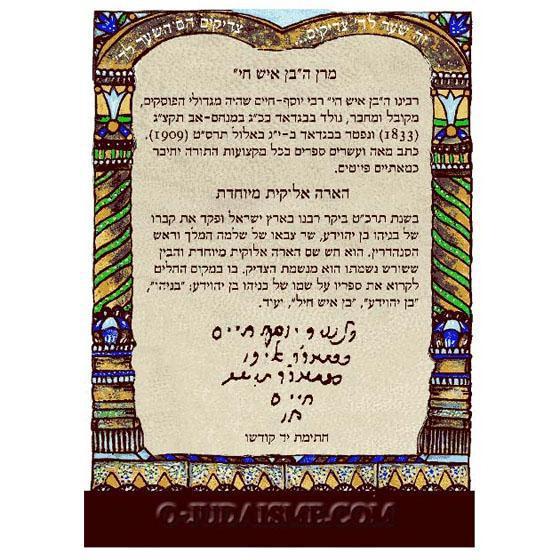 זה שער לד' צדיקים...
...צדיקים הם השער לד'
מרן ה"בן איש חי"
רבינו ה"בן איש חי" רבי יוסף-חיים שהיה מגדולי הפוסקים,
מקובל ומחבר, נולד בבגדאד בכ"ג במנחם-אב תקצ"ג
(1833) ונפטר בבגדאד ב-י"ג באלול תרס"ט (1909).
כתב מאה ועשרים ספרים בכל מקצועות התורה יחיבר
כמאתיים פיוטים.
הארה אלוקית מיוחדת
בשנת תרכ"ט ביקר רבנו בארץ ישראל ופקד את קברו
של בניהו בן יהוידע, שר צבאו של שלמה המלך וראש
הסנהדרין. הוא חש שם הארה אלוקית מיוחדת והבין
ששורש נשמתו הוא מנשמת הצדיק. בו במקום החליט
לקרוא את ספריו על שמו של בניהו בן יהוידע: "בניהו",
"בן יהוידע", "בן איש חיל", ועוד.
יוסף חיים
חיים
חתימת יד קודשו
O-JUDAISME.COM